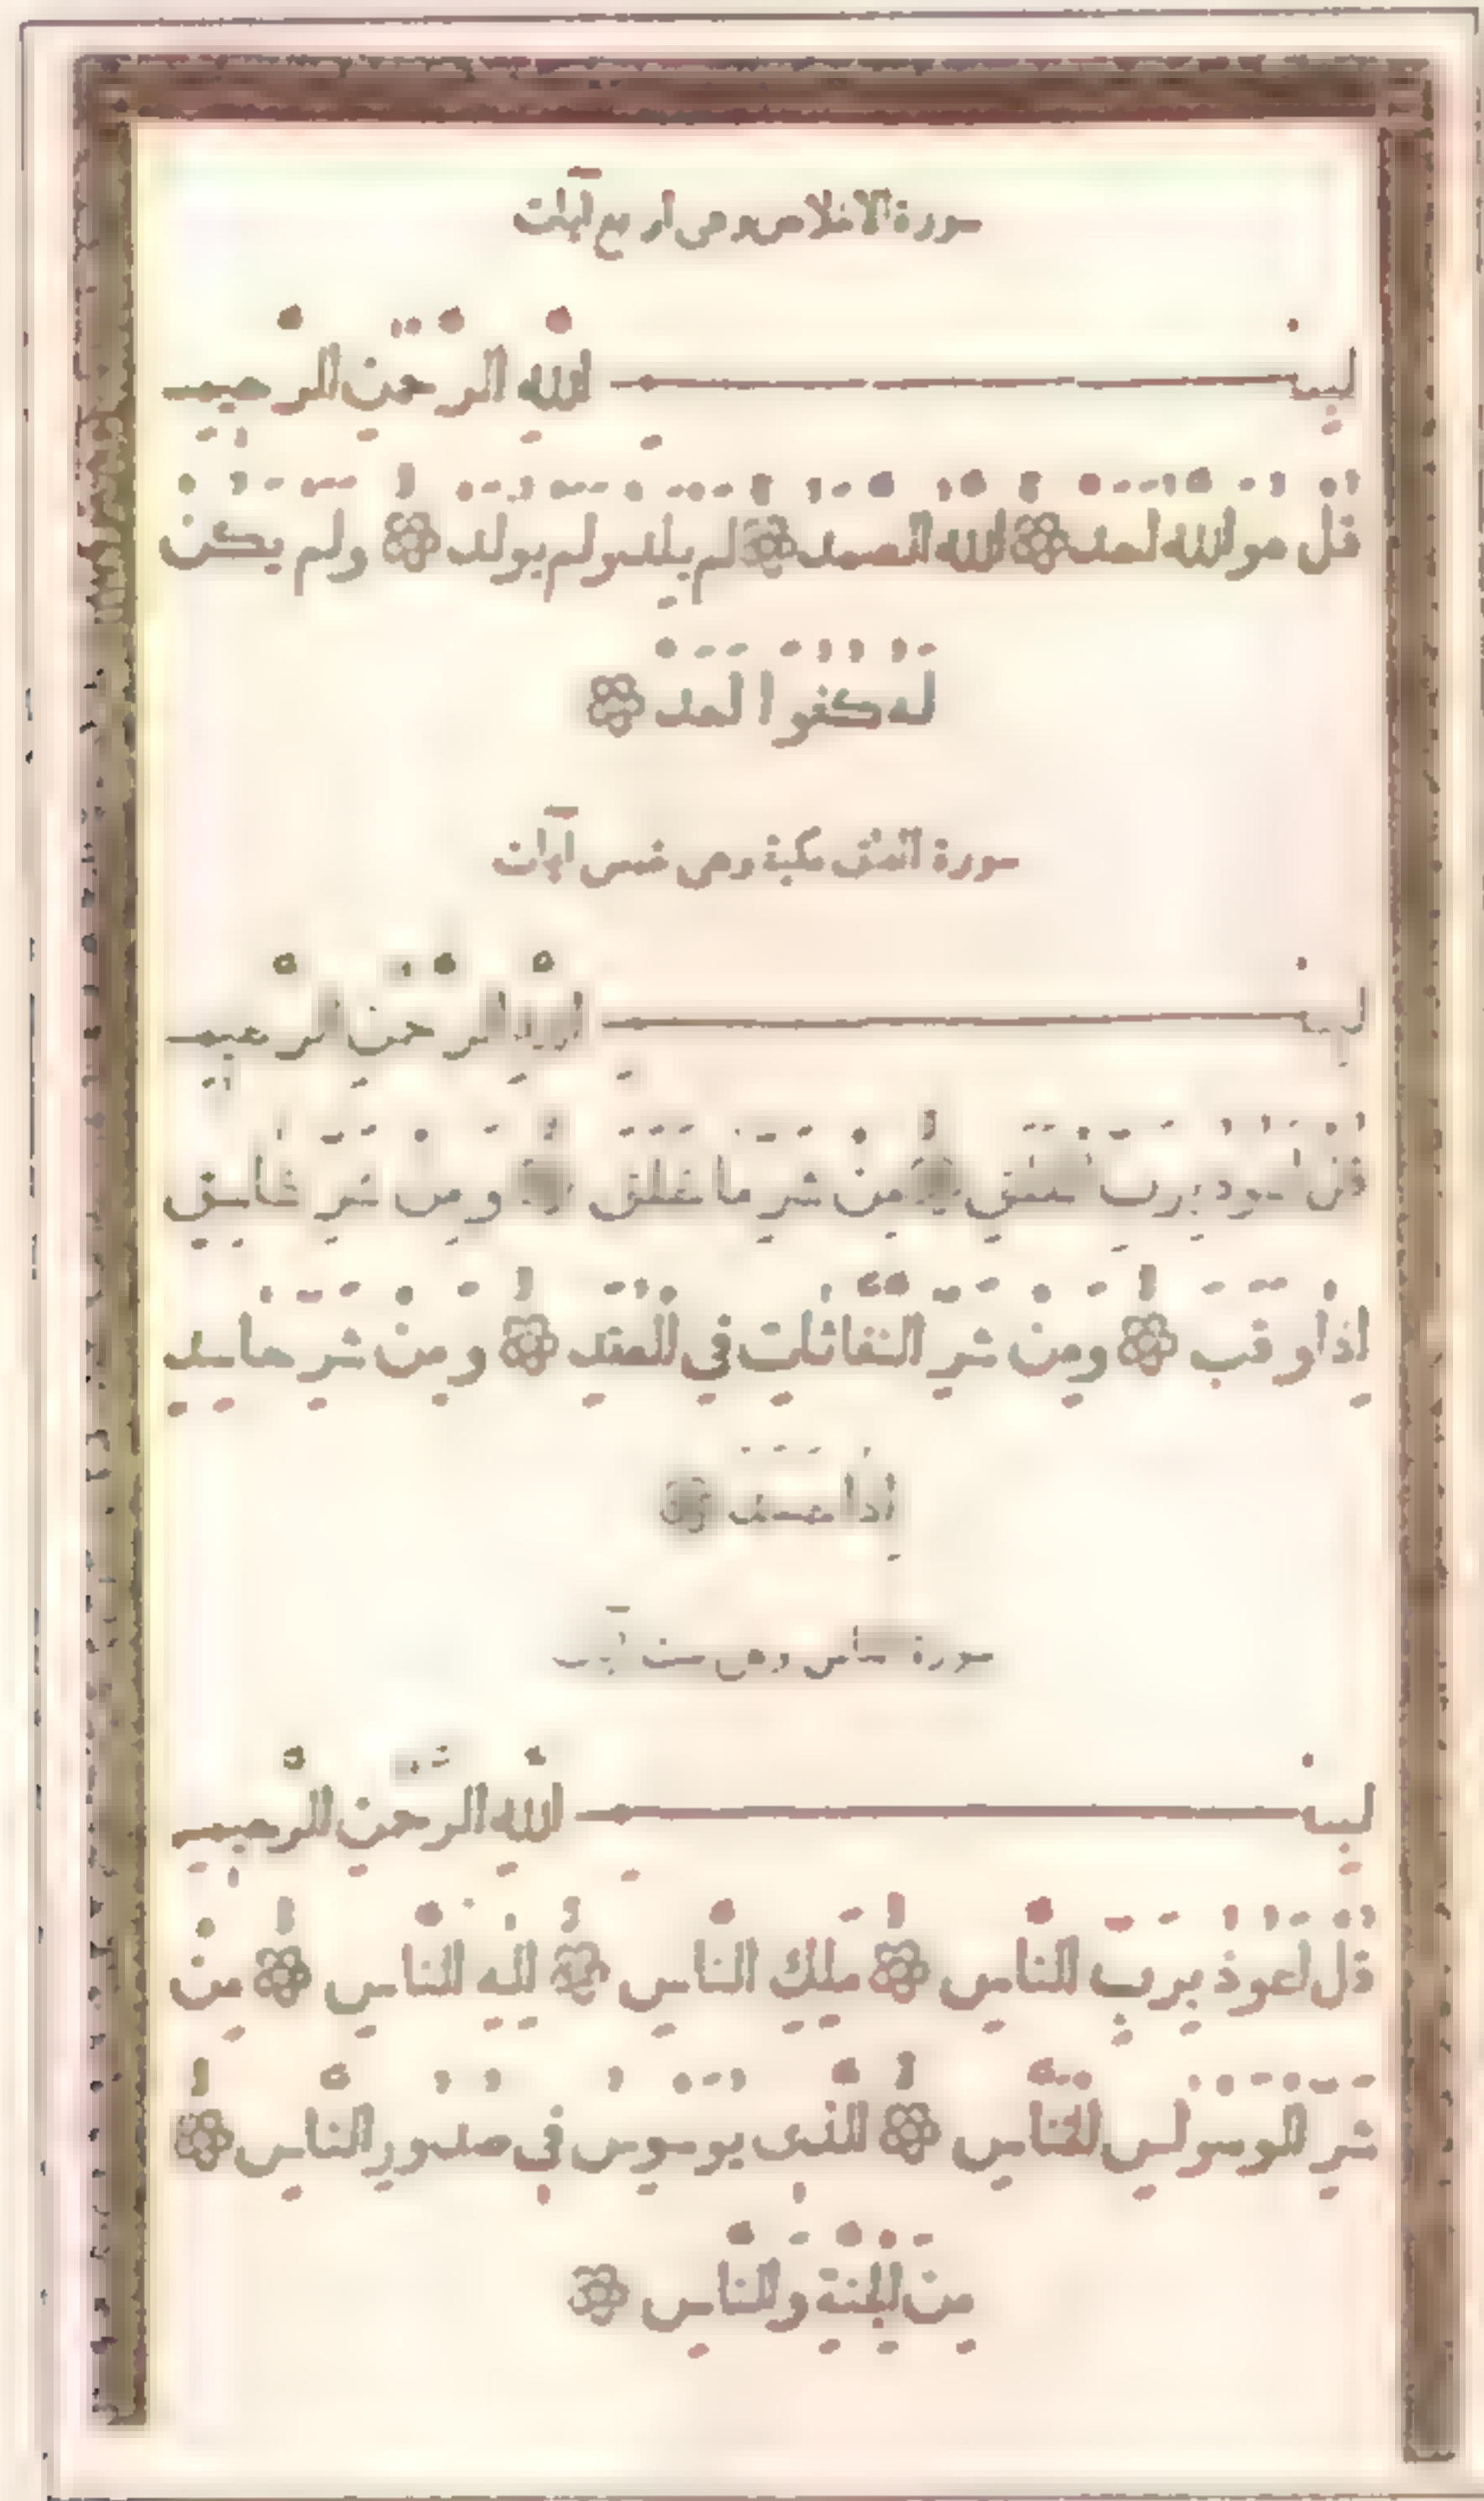 سورة الاخلاص وهى اربع آيات
بِسْمِ اللّٰهِ الرَّحْمٰنِ الرَّحِيمِ
قُلْ هُوَ اللّٰهُ أَحَدٌ اللّٰهُ الصَّمَدُ لَمْ يَلِدْ وَلَمْ يُولَدْ وَلَمْ يَكُنْ
لَهُ كُفُوًا أَحَدٌ
سورة الفلق مكية وهى خمس آيات
بِسْمِ اللّٰهِ الرَّحْمٰنِ الرَّحِيمِ
قُلْ أَعُوذُ بِرَبِّ الْفَلَقِ مِنْ شَرِّ مَا خَلَقَ وَمِنْ شَرِّ غَاسِقٍ
إِذَا وَقَبَ وَمِنْ شَرِّ النَّفَّاثَاتِ فِي الْعُقَدِ وَمِنْ شَرِّ حَاسِدٍ
إِذَا حَسَدَ
سورة الناس وهى ست آيات
بِسْمِ اللّٰهِ الرَّحْمٰنِ الرَّحِيمِ
قُلْ أَعُوذُ بِرَبِّ النَّاسِ مَلِكِ النَّاسِ إِلٰهِ النَّاسِ مِنْ
شَرِّ الْوَسْوَاسِ الْخَنَّاسِ الَّذِى يُوَسْوِسُ فِى صُدُورِ النَّاسِ
مِنَ الْجِنَّةِ وَالنَّاسِ